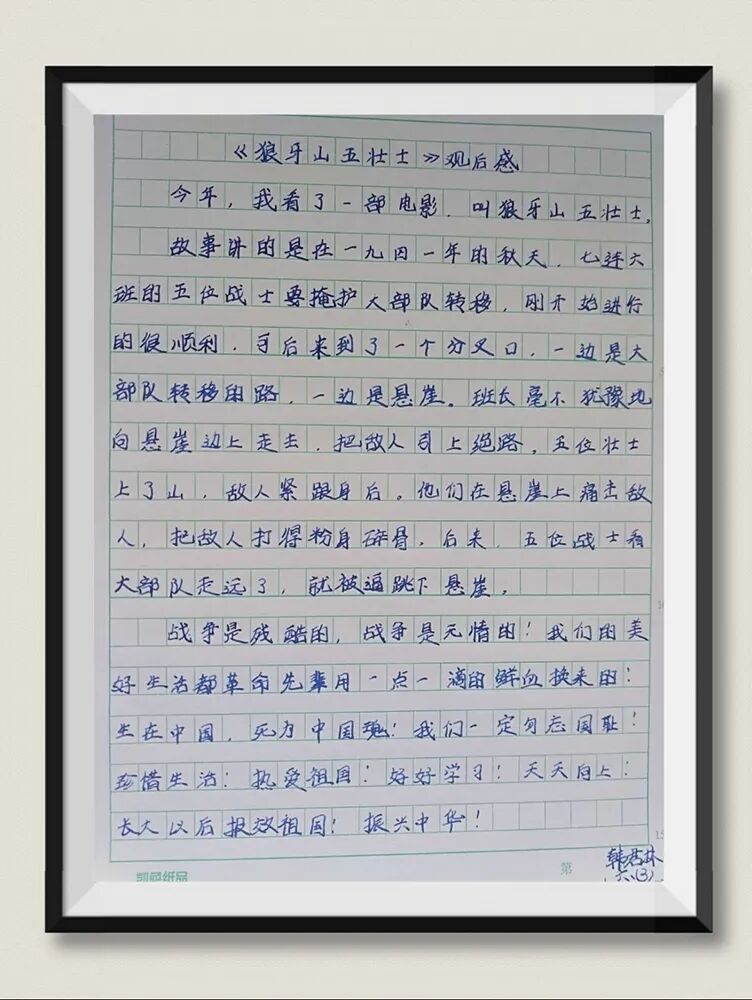 《狼牙山五壮士》观后感
今年，我看了一部电影．叫狼牙山五壮士．
故事讲的是在一九四一年的秋天．七连六
班的五位战士要掩护大部队转移．刚开始进行
的很顺利．可后来到了一个分叉口．一边是大
部队转移的路．一边是悬崖。班长毫不犹豫地
向悬崖边上走去．把敌人引上绝路。五位壮士
上了山．敌人紧跟身后。他们在悬崖上痛击敌
人．把敌人打得粉身碎骨．后来．五位战士看
大部队走远了，就被逼跳下悬崖。
战争是残酷的，战争是无情的！我们的美
好生活都革命先辈用一点一滴的鲜血换来的！
生在中国，死为中国魂！我们一定勿忘国耻！
珍惜生活！热爱祖国！好好学习！天天向上！
长大以后报效祖国！振兴中华！
第
韩君林
六(3)